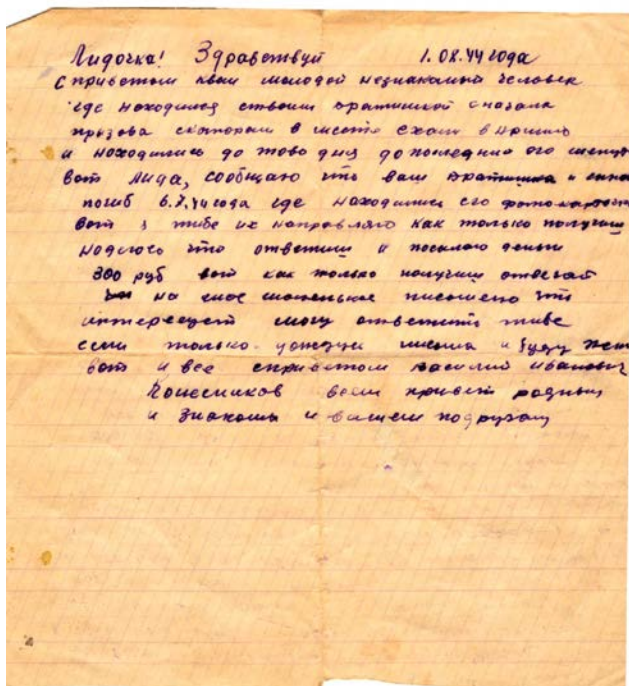 Лидочка! Здравствуй 1.08.44 года
с приветом к вам молодой незнакомый человек
где находился ствоим братишкой сначала
призова в месте
и находились до тово дня до последние его
вот Лида, сообщаю что ваш братишка
погиб 6.7.44 года где находились его
вот я тибе их направляю как только получиш
надеюсь что ответиш и посылаю деньги
300 руб вот как только получиш отвечай
на мое маленькое писмецо что
интересует смогу ответить тибе
если только писма и буду
вот и все сприветом василий иванович
Колесников всем привет родным
и знакомы и вашем подругам